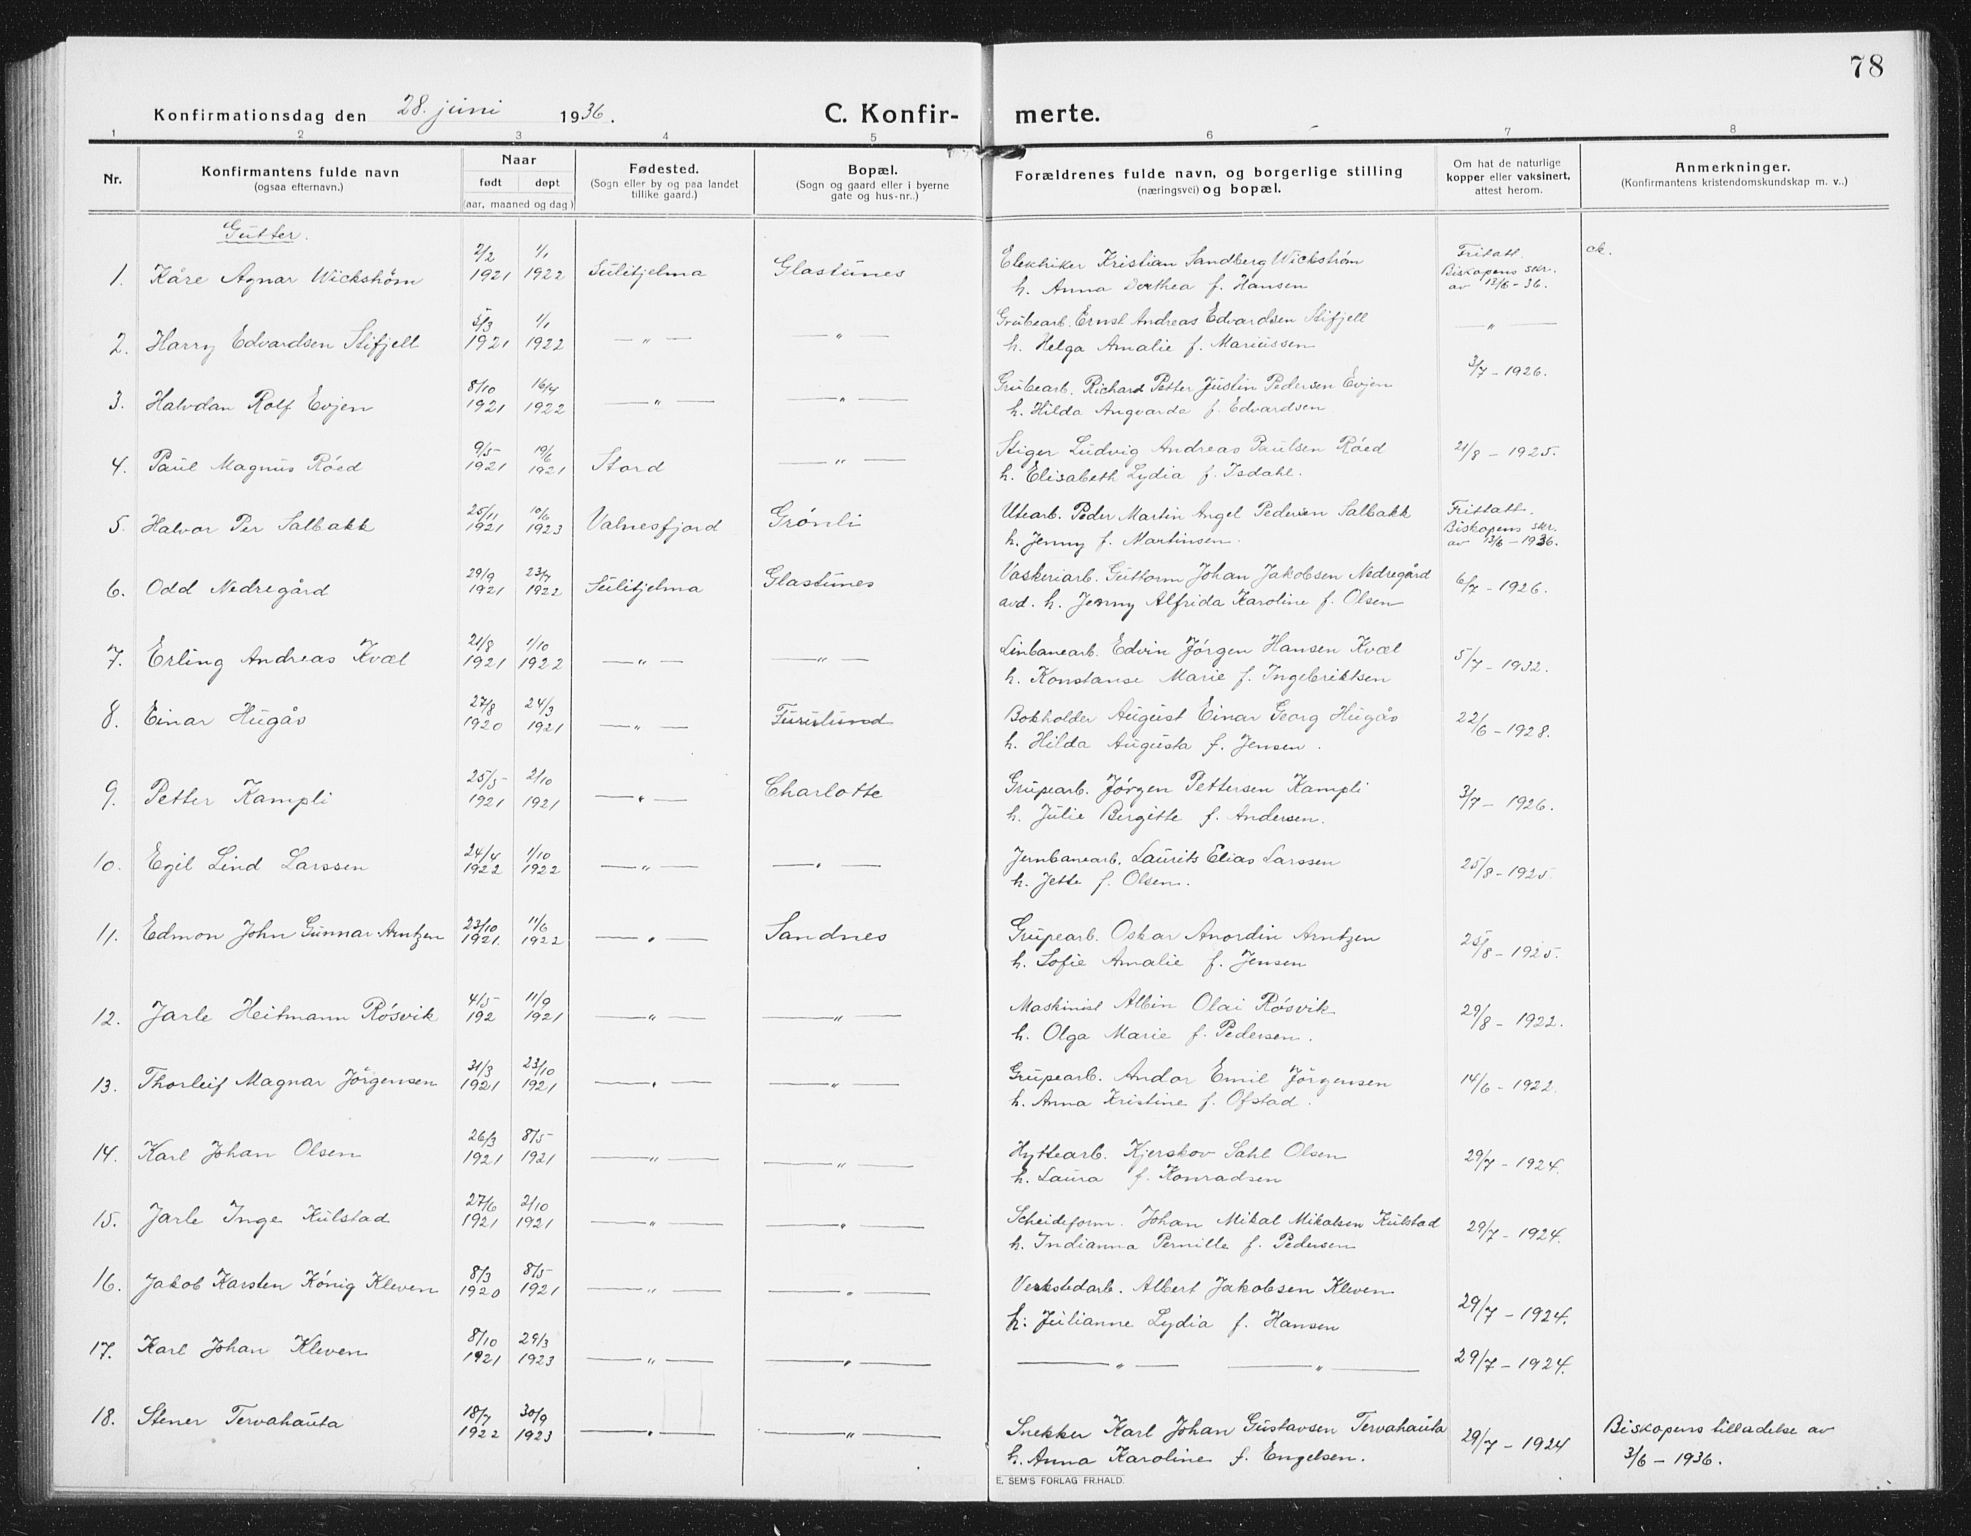 78
Konfirmationsdag den 28. juni 1936.
C. Konfirmerte.
1 2 3 4 5 6 7 8
Nr.
Konfirmantens fulde navn
(ogsaa efternavn.)
Naar
født døpt
(aar, maaned og dag)
Fødested.
(Sogn eller by og paa landet
tillike gaard.)
Bopæl.
(Sogn og gaard eller i byerne
gate og hus-nr..)
Forældrenes fulde navn, og borgerlige stilling
(næringsvei) og bopæl.
Om hat de naturlige
kopper eller vaksinert,
attest herom.
Anmerkninger.
(Konfirmantens kristendomskundskap m. v..)
Gutter.
1. Kåre Agnar Wickstrøm 2/2 1921 1/1 1922 Sulitjelma Glastunes Elektriker Kristian Sandberg Wickstrøm
h. Anna Dorthea f. Hansen
Fritatt.
Biskopens skr.
av 13/6-36.
ok.
2. Harry Edvardsen Stifjell 5/3 1921 1/1 1922 — " — — " — Grubearb. Ernst Andreas Edvardsen Stifjell — " —
h. Helga Amalie f. Mariussen
3. Halvdan Rolf Evjen 8/10 1921 16/4 1922 — " — — " — Grubearb. Richard Petter Justin Pedersen Evjen 3/7 - 1926.
h. Hilda Angvarda f. Edvardsen
4. Paul Magnus Röed 9/5 1921 19/6 1921 Stord — " — Stiger Ludvig Andreas Paulsen Röed 21/8 - 1925.
h. Elisabeth Lydia f. Isdahl.
5. Halvor Per Salbakk 25/11 1921 10/6 1923 Valnesfjord Grönli Utearb. Peder Martin Angel Pedersen Salbakk
h. Jenny f. Martinsen.
Fritatt.
Biskopens skr.
av 13/6-1936.
6. Odd Nedregård 29/9 1921 23/7 1922 Sulitjelma Glastunes Vaskeriarb. Guttorm Johan Jakobsen Nedregård 6/7 - 1926.
avd. h. Jenny Alfrida Karoline f. Olsen
7. Erling Andreas Kvæl 21/8 1921 1/10 1922 — " — — " — Linbanearb. Edvin Jörgen Hansen Kvæl 5/7 - 1932.
h. Konstanse Marie f. Ingebriktsen
8. Einar Hugås 27/8 1920 24/3 1921 — " — Furulund Bokholder August Einar Georg Hugås 22/6 - 1928.
h. Hilda Augusta f. Jensen.
9. Petter Kampli 25/5 1921 2/10 1921 — " — Charlotte Grupearb. Jörgen Pettersen Kampli 3/7 - 1926.
h. Julie Bergitte f. Andersen.
10. Egil Lind Larssen 24/4 1922 1/10 1922 — " — — " — Jernbanearb. Laurits Elias Larssen 25/8 - 1925
h. Jette f. Olsen.
11. Edmon John Gunnar Arntzen 23/10 1921. 11/6 1922 — " — Sandnes Grupearb. Oskar Anordin Arntzen 25/8 - 1925.
h. Sofie Amalie f. Jensen
12. Jarle Heitmann Rösvik 4/5 192 11/9 1921 — " — — " — Maskinist Albin Olai Rösvik 29/8 - 1922.
h. Olga Marie f. Pedersen.
13. Thorleif Magnar Jörgensen 31/3 1921 23/10 1921 — " — — " — Grupearb. Andor Emil Jörgensen 14/6 - 1922.
h. Anna Kristine f. Ofstad.
14. Karl Johan Olsen 26/3 1921 8/5 1921 — " — — " — Hyttearb. Kjerskov Sahl Olsen 29/7 - 1924.
h. Laura f. Konradsen
15. Jarle Inge Kulstad 27/6 1921 2/10 1921 — " — — " — Scheideform. Johan Mikal Mikalsen Kulstad 29/7 - 1924.
h. Indianna Pernille f. Pedersen
16. Jakob Karsten König Kleven 8/3 1920 8/5 1921 — " — — " — Verkstedarb. Albert Jakobsen Kleven 29/7 - 1924.
h. Julianne Lydia f. Hansen
17. Karl Johan Kleven 8/10 1921 29/3 1923 — " — — " — — " — — " — 29/7 - 1924.
18. Stener Tervahauta 18/7 1922 30/9 1923 — " — — " — Snekker Karl Johan Gustavsen Tervahauta 29/7 - 1924 Biskopens tilladelse av
h. Anna Karoline f. Engelsen. 3/6 - 1936.
E. SEM'S FORLAG FR.HALD.